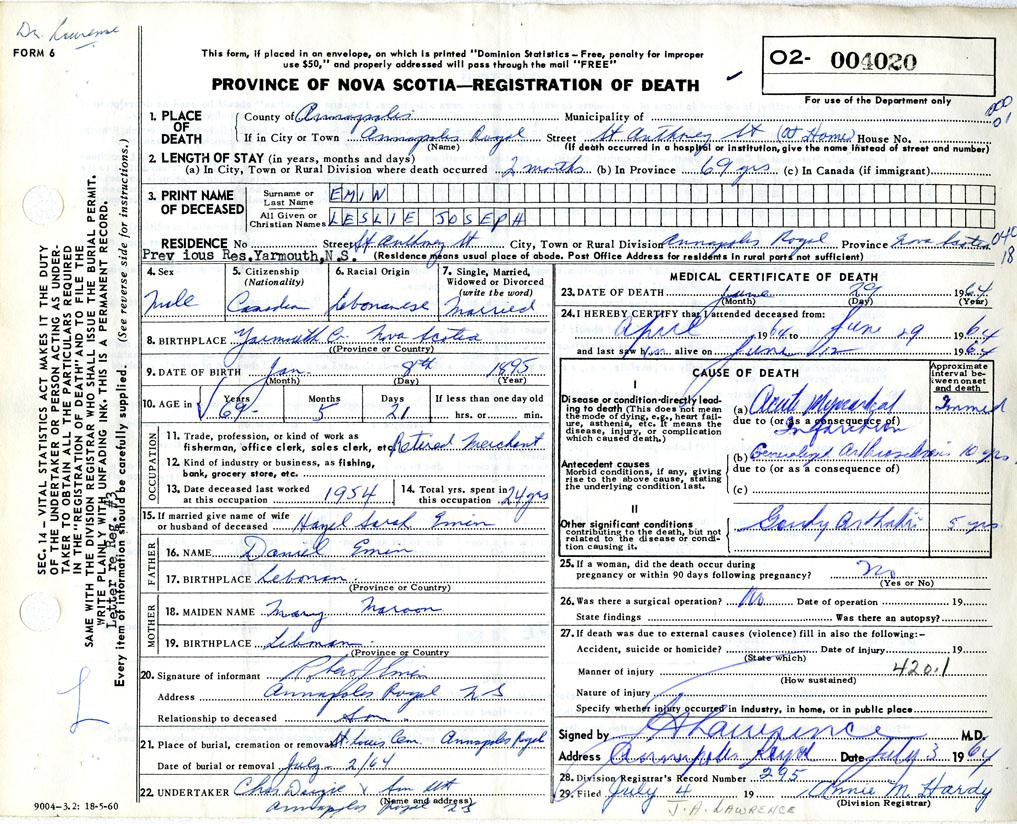 Dr. Lawrence
FORM 6
This form, if placed in an envelope, on which is printed "Dominion Statistics – Free, penalty for improper
use $50," and properly addressed will pass through the mail "FREE"
PROVINCE OF NOVA SCOTIA—REGISTRATION OF DEATH
O2- 004020
For use of the Department only
1. PLACE OF DEATH
County of Annapolis Municipality of
If in City or Town Annapolis Royal Street St Anthony St (At Home) House No.
(Name) (If death occurred in a hospital or institution, give the name instead of street and number)
2. LENGTH OF STAY (in years, months and days)
(a) In City, Town or Rural Division where death occurred 2 months (b) In Province 69 yrs (c) In Canada (if immigrant)
3. PRINT NAME OF DECEASED
Surname or Last Name EMIN
All Given or Christian Names LESLIE JOSEPH
RESIDENCE No Street St Anthony St City, Town or Rural Division Annapolis Royal Province Nova Scotia
040
18
Previous Res. Yarmouth, N.S. (Residence means usual place of abode. Post Office Address for residents in rural parts not sufficient)
4. Sex
Male
5. Citizenship (Nationality)
Canadian
6. Racial Origin
Lebonanese
7. Single, Married, Widowed or Divorced (write the word)
Married
8. BIRTHPLACE Yarmouth Co. Nova Scotia
(Province or Country)
9. DATE OF BIRTH Jan. 8th 1895
(Month) (Day) (Year)
10. AGE in Years 69 Months 5 Days 21 If less than one day old hrs. or min.
OCCUPATION
11. Trade, profession, or kind of work as fisherman, office clerk, sales clerk, etc. Retered Merchant
12. Kind of industry or business, as fishing, bank, grocery store, etc.
13. Date deceased last worked at this occupation 1954
14. Total yrs. spent in this occupation 24 yrs
15. If married give name of wife or husband of deceased Hazel Sarah Emin
FATHER
16. NAME Daniel Emin
17. BIRTHPLACE Lebonan
(Province or Country)
MOTHER
18. MAIDEN NAME Mary Maroon
19. BIRTHPLACE Lebonan
(Province or Country
20. Signature of informant Emin
Address Annapolis Royal NS
Relationship to deceased Son
21. Place of burial, cremation or removal St Louis Cem. Annapolis Royal
Date of burial or removal July 2/64
22. UNDERTAKER Chas & Son
(Name and address)
Annapolis Royal NS
9004–3.2: 18-5-60
MEDICAL CERTIFICATE OF DEATH
23. DATE OF DEATH June 29 1964
(Month) (Day) (Year)
24. I HEREBY CERTIFY that I attended deceased from:
April 1964 to June 29 1964
and last saw him alive on June 1964
CAUSE OF DEATH
Approximate interval between onset and death
I
Disease or condition directly leading to death (This does not mean the mode of dying, e.g., heart failure, asthenia, etc. It means the disease, injury, or complication which caused death.)
(a) Acute Myocardial Infarction Immed
due to (or as a consequence of)
Antecedent causes
Morbid conditions, if any, giving rise to the above cause, stating the underlying condition last.
(b) Generalized 10 yrs.
due to (or as a consequence of)
(c)
II
Other significant conditions
contributing to the death, but not related to the disease or condition causing it.
Gouty Arthritis 5 yrs
25. If a woman, did the death occur during pregnancy or within 90 days following pregnancy? No
(Yes or No)
26. Was there a surgical operation? No Date of operation 19
State findings Was there an autopsy?
27. If death was due to external causes (violence) fill in also the following:–
Accident, suicide or homicide? Date of injury 19
(State which)
Manner of injury 420.1
(How sustained)
Nature of injury
Specify whether injury occurred in industry, in home, or in public place
Signed by Lawrence M.D.
Address Annapolis Royal Date July 3 1964
28. Division Registrar's Record Number 295
29. Filed July 4 19 Annie M. Hardy
(Division Registrar)
J. A. LAWRENCE
SEC. 14 – VITAL STATISTICS ACT MAKES IT THE DUTY
OF THE UNDERTAKER OR PERSON ACTING AS UNDER-
TAKER TO OBTAIN ALL THE PARTICULARS REQUIRED
IN THE "REGISTRATION OF DEATH" AND TO FILE THE
SAME WITH THE DIVISION REGISTRAR WHO SHALL ISSUE THE BURIAL PERMIT.
WRITE PLAINLY WITH UNFADING INK. THIS IS A PERMANENT RECORD.
Letter re Reg. #3
Every item of information should be carefully supplied. (See reverse side for instructions.)